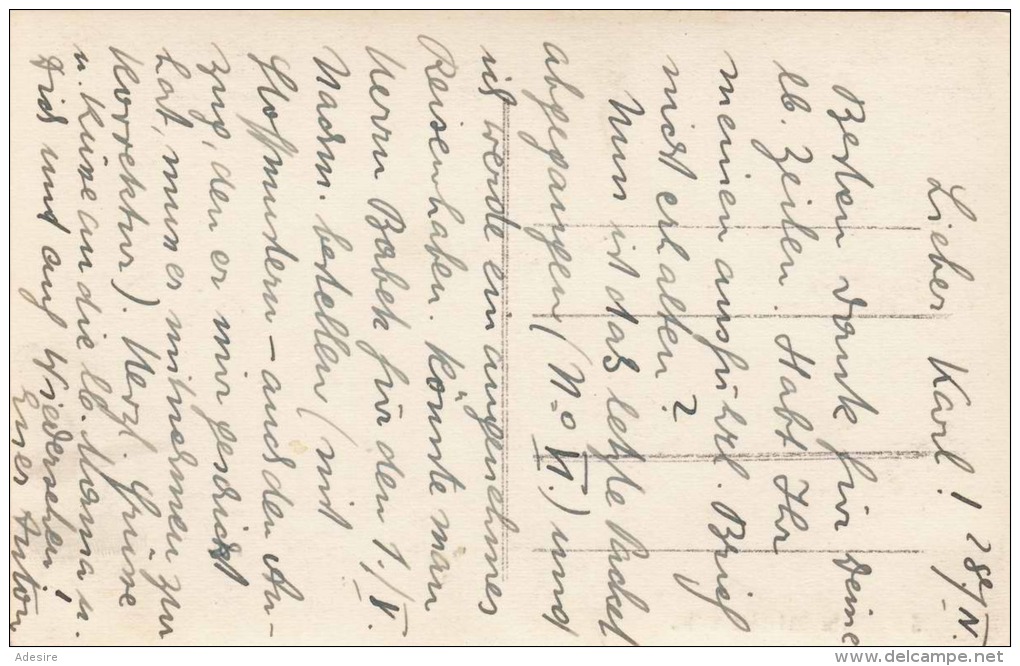 Lieber Karl! 28/IV.
Besten Dank für Deine
lb. Zeilen. Habt Ihr
meinen ausführl. Brief
nicht erhalten?
Nun ist das letzte Packet
abgegangen (No VI.) und
ich werde ein angenehmes
Reisen haben. Könnte man
Herrn Babek für den 1./V.
Nachm. bestellen (mit
Stoffmustern – auch den An-
zug, den er mir geschickt
hat, muss er mitnehmen zur
Korrektur). Herzl. Grüsse
u. Küsse an die lb. Mama u.
Dich und auf Wiedersehen!
Euer Anton
Adesire
delcampe.net